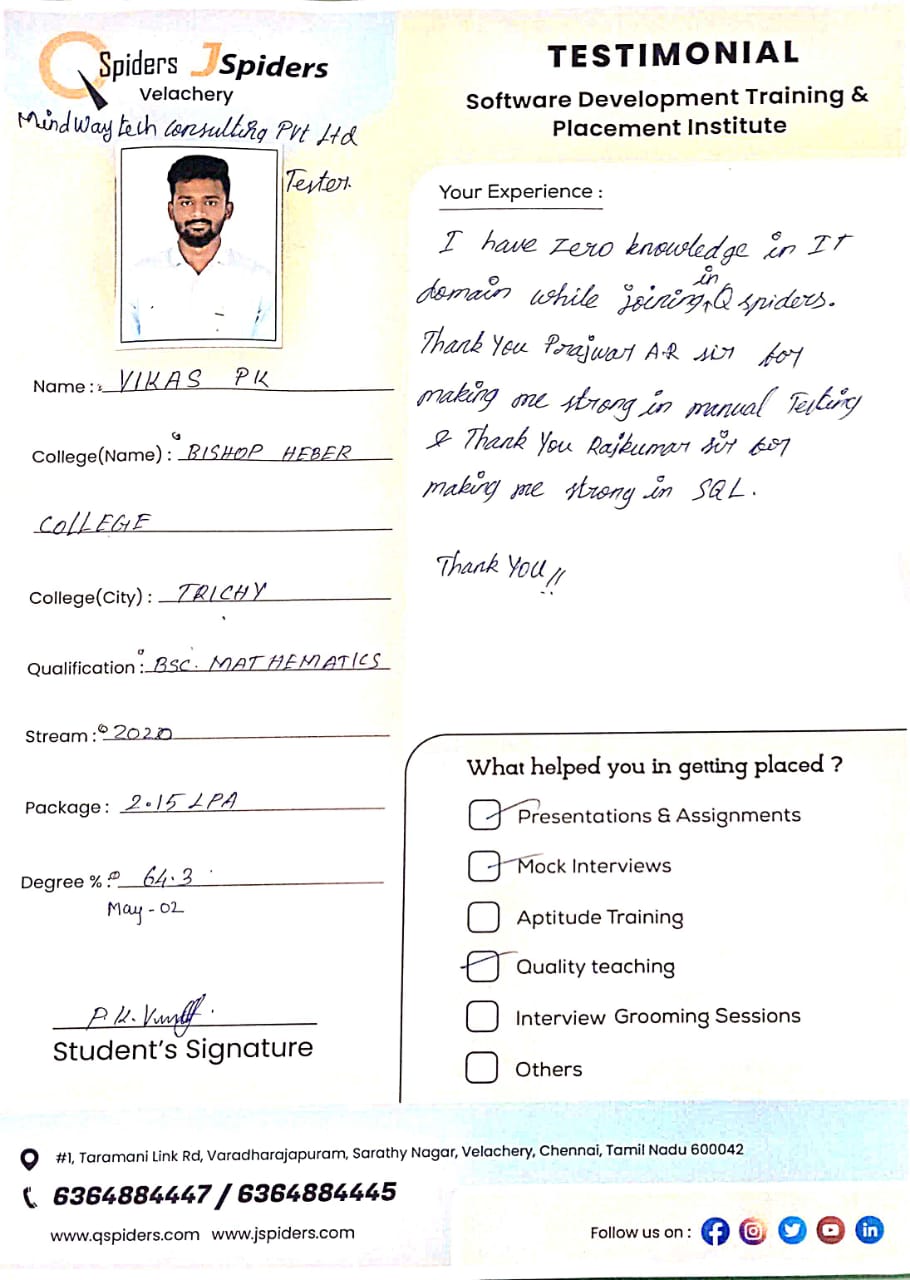 QSpiders JSpiders
Velachery
MindWay tech consulting Pvt Ltd
Tester.
Name : VIKAS PK
College(Name) : BISHOP HEBER
COllEGE
College(City) : TRICHY
Qualification : BSC. MATHEMATICS
Stream : 2020
Package : 2.15 LPA
Degree % : 64.3
May - 02
Student's Signature
TESTIMONIAL
Software Development Training &
Placement Institute
Your Experience :
I have zero knowledge in IT
domain while joining in Q spiders.
Thank You Prajwal A.R sir for
making me strong in manual Testing
& Thank You Rajkumar sir for
making me strong in SQL.
Thank YOU!!
What helped you in getting placed ?
Presentations & Assignments
Mock Interviews
Aptitude Training
Quality teaching
Interview Grooming Sessions
Others
#1, Taramani Link Rd, Varadharajapuram, Sarathy Nagar, Velachery, Chennai, Tamil Nadu 600042
6364884447 / 6364884445
www.qspiders.com www.jspiders.com
Follow us on :